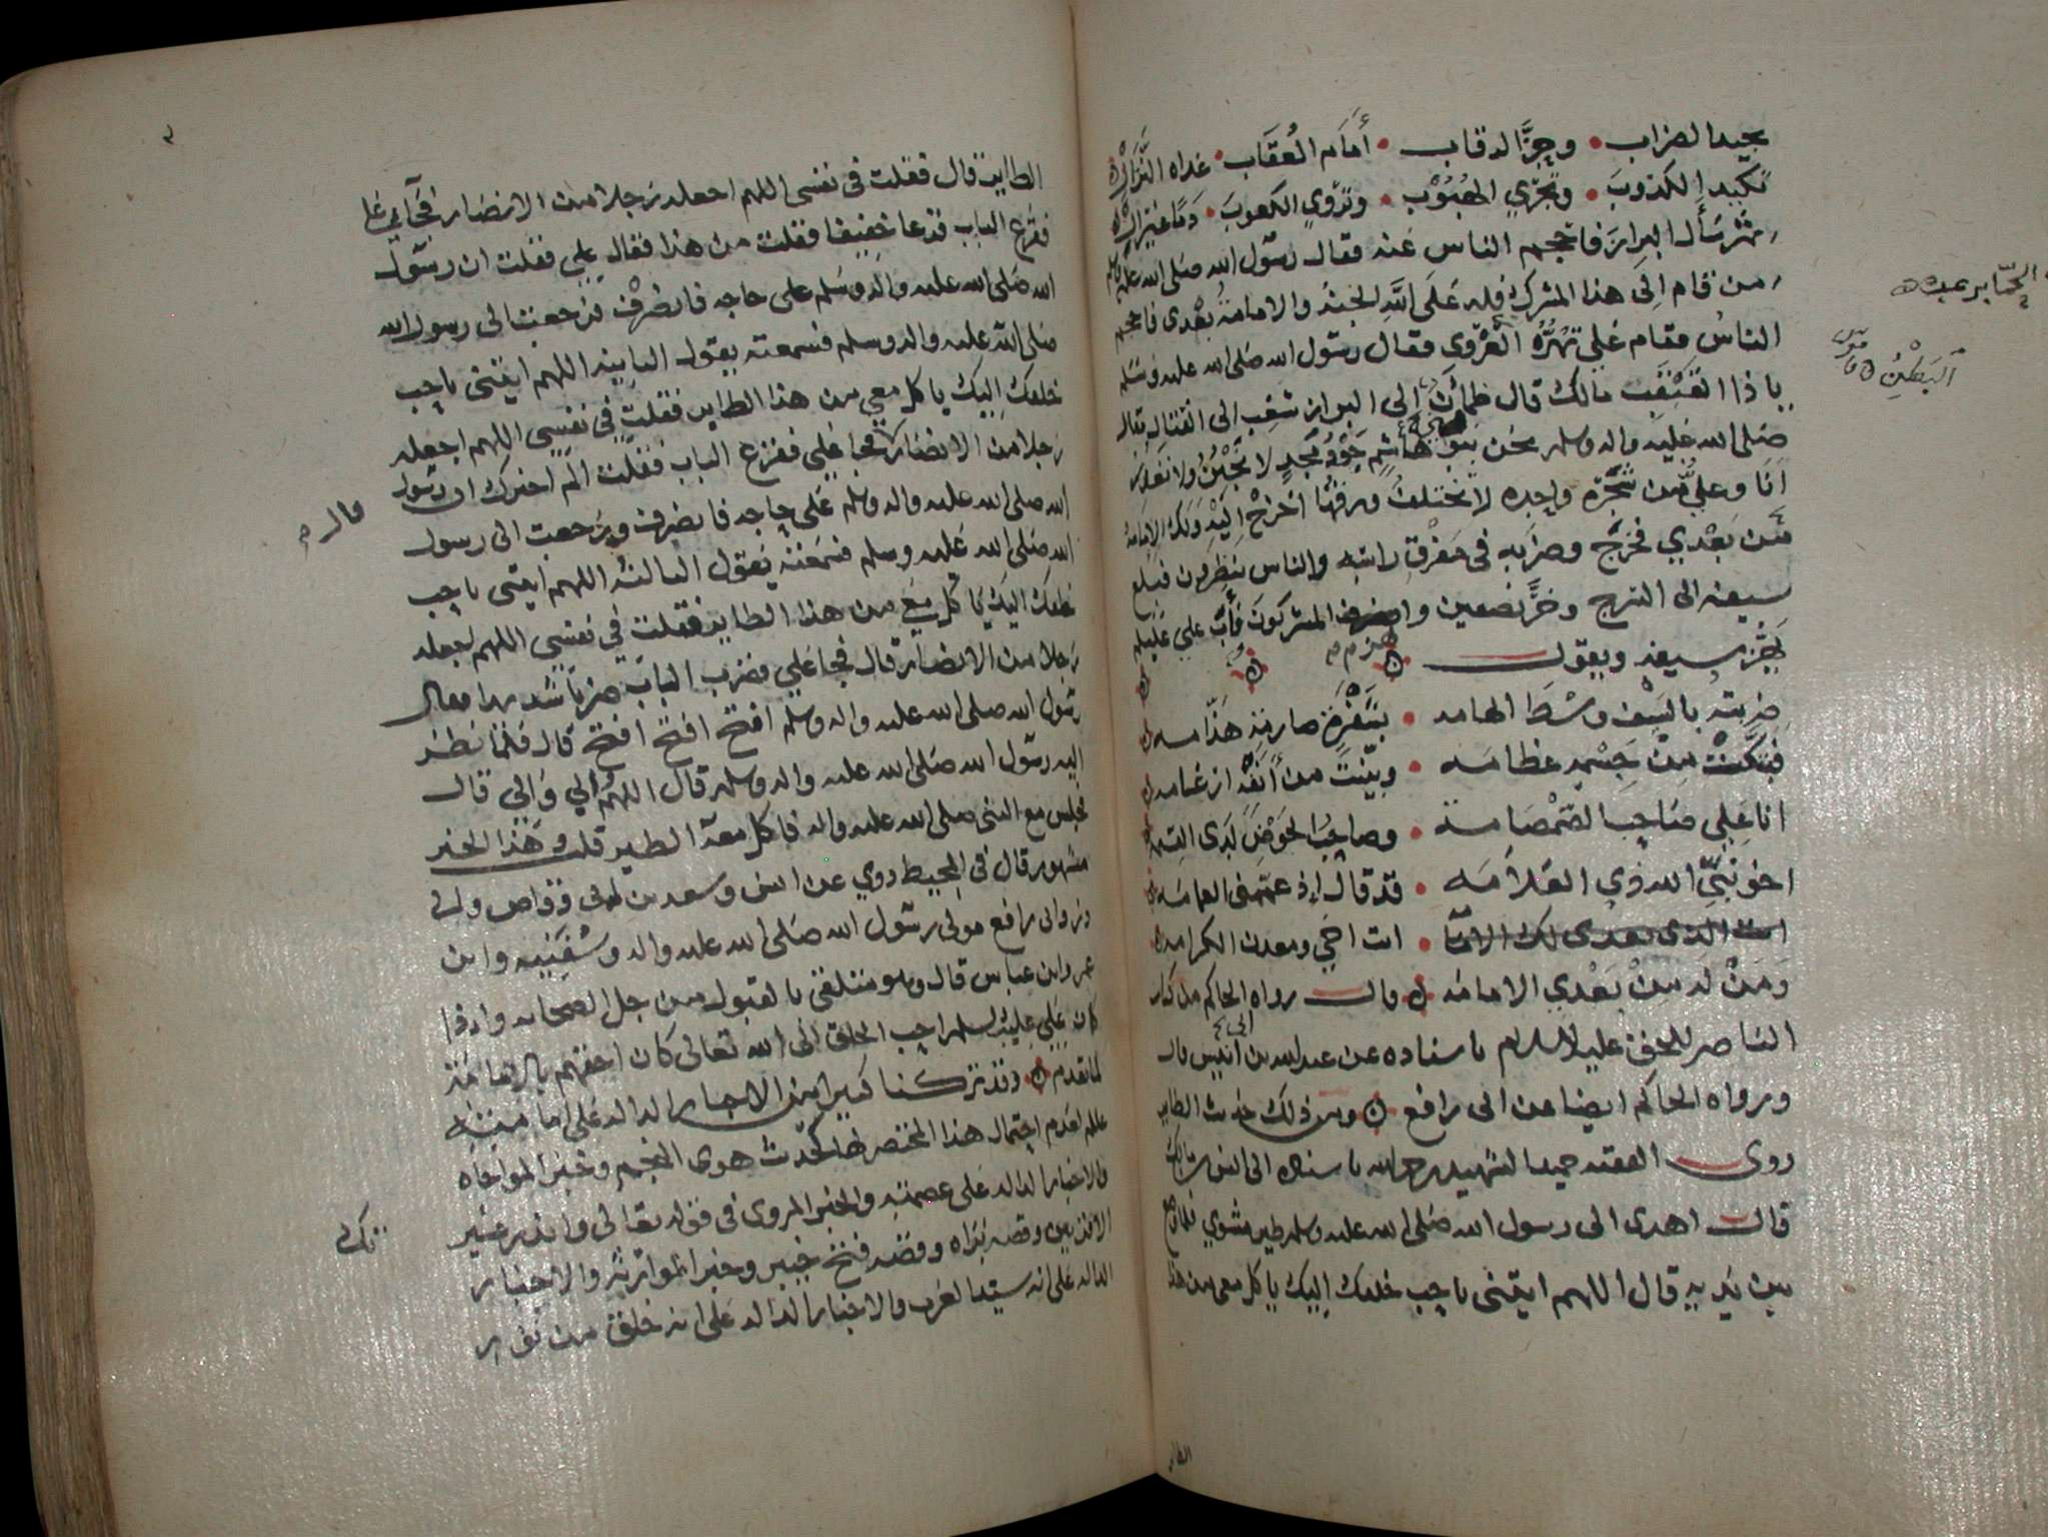 يجيد الضراب • وجزّ الرقاب • أمام العُقاب • غداه النزال
تكيد الكذوب • وتجري الهبوب • وتروّي الكعوب • دمًا غير ال
ثم سأل البراز فاحجم الناس عنه فقال رسول الله صلى الله عليه
من قام الى هذا المشرك فله على الله الجنة والامامة بعدي فاحجم
الناس فقام علي تهزه العروى فقال رسول الله صلى الله عليه وسلم
يا ذا القفقف مالك قال ظمآن الى البراز شغب الى القتال فقال
صلى الله عليه واله وسلم نحن بنو هاشم جود مجد لا نجبن ولا
انا وعلي من شجره واحده لا تختلف ورقها اخرج اليه ولك الامامة
من بعدي فخرج وضربه في مفرق راسه والناس ينظرون فبلغ
سيفه الى السرج وخرّ نصفين وانهزم المشركون فأب علي عليلم
يهز سيفه ويقول
ضربته بالسيف وسط الهامه • بشفرة صارمة هذّامه
فبتكت من جسمه عظامه • وبيّنت من أنفه ارغامه
انا علي صاحب الصمصامة • وصاحب الحوض لدى القيمة
اخو نبيّ الله ذي العلامه • قد قال اذ عممني العمامه
انت الذي بعدي لك الاما • انت اخي ومعدن الكرامه
ومن له من بعدي الامامه قال رواه الحاكم من كتاب
الناصر للحق عليه السلام باسناده عن عبدالله بن انيس قال
ورواه الحاكم ايضا عن ابي رافع ومن ذلك حديث الطاير
روى الفقيه حميد الشهيد رحمه الله باسناده الى انس بن مالك
قال اهدى الى رسول الله صلى الله عليه وسلم طير مشوي فلما وضع
بين يديه قال اللهم ايتني باحب خلقك اليك ياكل معي من هذا
الطاير
الطاير قال فقلت في نفسي اللهم اجعله رجلا من الانصار فجآ علي
فقرع الباب قرعا خفيفا فقلت من هذا فقال علي فقلت ان رسول
الله صلى الله عليه واله وسلم على حاجه فانصرف فرجعت الى رسول الله
صلى الله عليه واله وسلم فسمعته يقول الثانيه اللهم ايتني باحب
خلقك اليك ياكل معي من هذا الطاير فقلت في نفسي اللهم اجعله
رجلا من الانصار فجا علي فقرع الباب فقلت الم اخبرك ان رسول
الله صلى الله عليه واله وسلم على حاجه فانصرف ورجعت الى رسول
الله صلى الله عليه وسلم فسمعته يقول الثالثه اللهم ايتني باحب
خلقك اليك ياكل معي من هذا الطاير فقلت في نفسي اللهم اجعله
رجلا من الانصار قال فجا علي فضرب الباب ضربا شديدا فقال
رسول الله صلى الله عليه واله وسلم افتح افتح افتح قال فلما نظر
اليه رسول الله صلى الله عليه واله وسلم قال اللهم الي والي قال
فجلس مع النبي صلى الله عليه واله فاكل معه الطير قلت وهذا الخبر
مشهور قال في المحيط روي عن انس وسعد بن ابي وقاص وابي
ذر وابي رافع مولى رسول الله صلى الله عليه واله وسفينه وابن
عمر وابن عباس قال وهو متلقى بالقبول من جل الصحابه واذا
كان علي عليه السلم احب الخلق الى الله تعالى كان احقهم بالامامة
لما تقدم وقد تركنا كثيرا من الاخبار الداله على امامته
عللم لعدم احتمال هذا المختصر لها كحديث هوى النجم وخبر المواخاه
والاخبار الداله على عصمته والخبر المروى في قوله تعالى وانذر عشير
الاقربين وقصه براه وقصه فتح خيبر وخبر الموازنه والاخبار
الداله على انه سيد العرب والاخبار الداله على انه خلق من نور